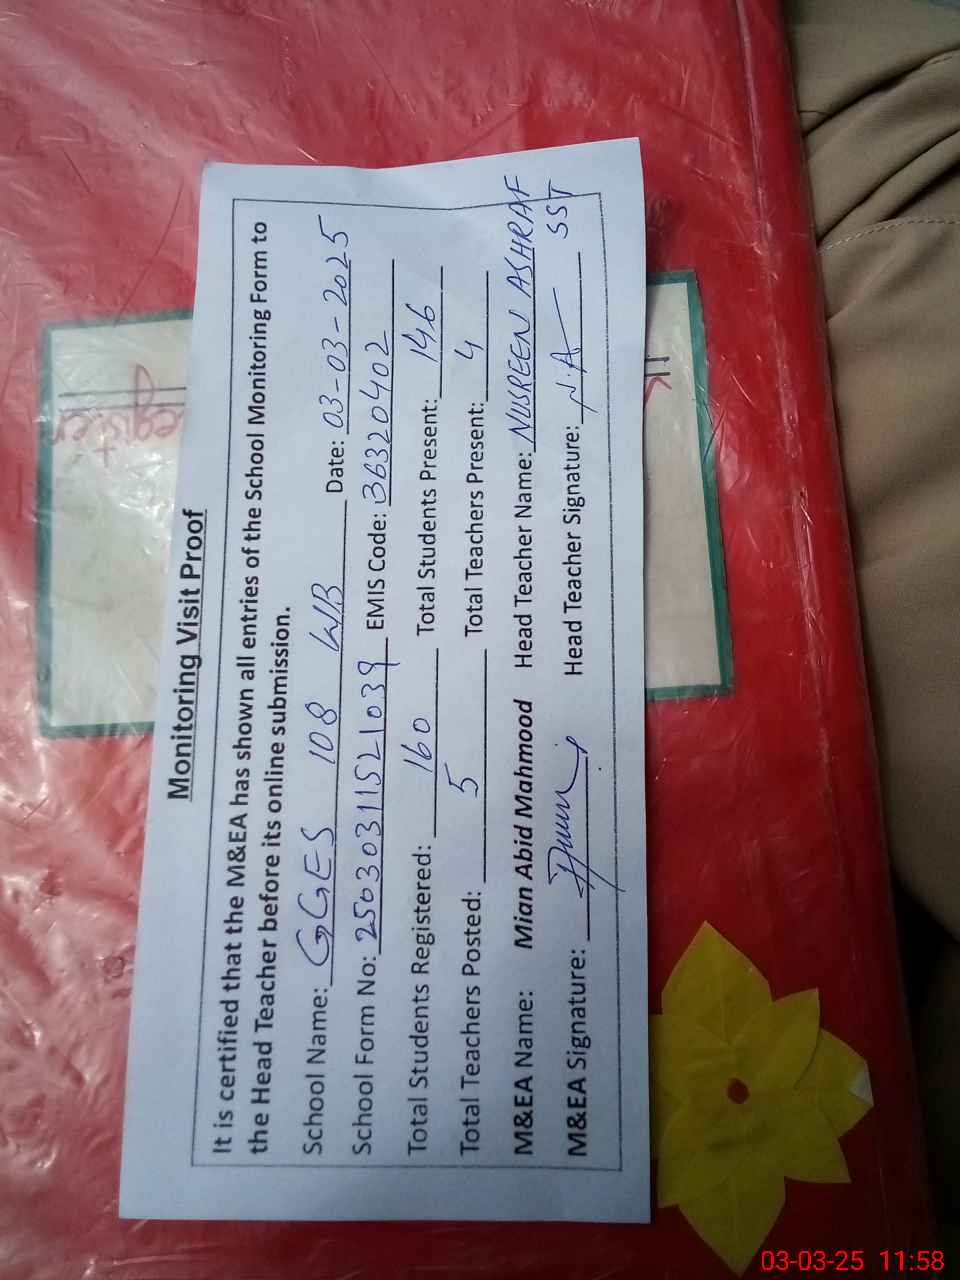 Monitoring Visit Proof
It is certified that the M&EA has shown all entries of the School Monitoring Form to
the Head Teacher before its online submission.
School Name: GGES 108 WB Date: 03-03-2025
School Form No: 25030311521039 EMIS Code: 36320402
Total Students Registered: 160 Total Students Present: 146
Total Teachers Posted: 5 Total Teachers Present: 4
M&EA Name: Mian Abid Mahmood Head Teacher Name: NUSREEN ASHRAF
SST
M&EA Signature: Head Teacher Signature: N.A
Register
03-03-25 11:58